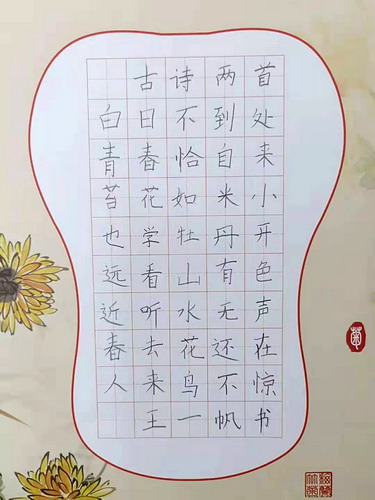 古诗两首
白日不到处
青春恰自来
苔花如米小
也学牡丹开
远看山有色
近听水无声
春去花还在
人来鸟不惊
王一帆书
菊